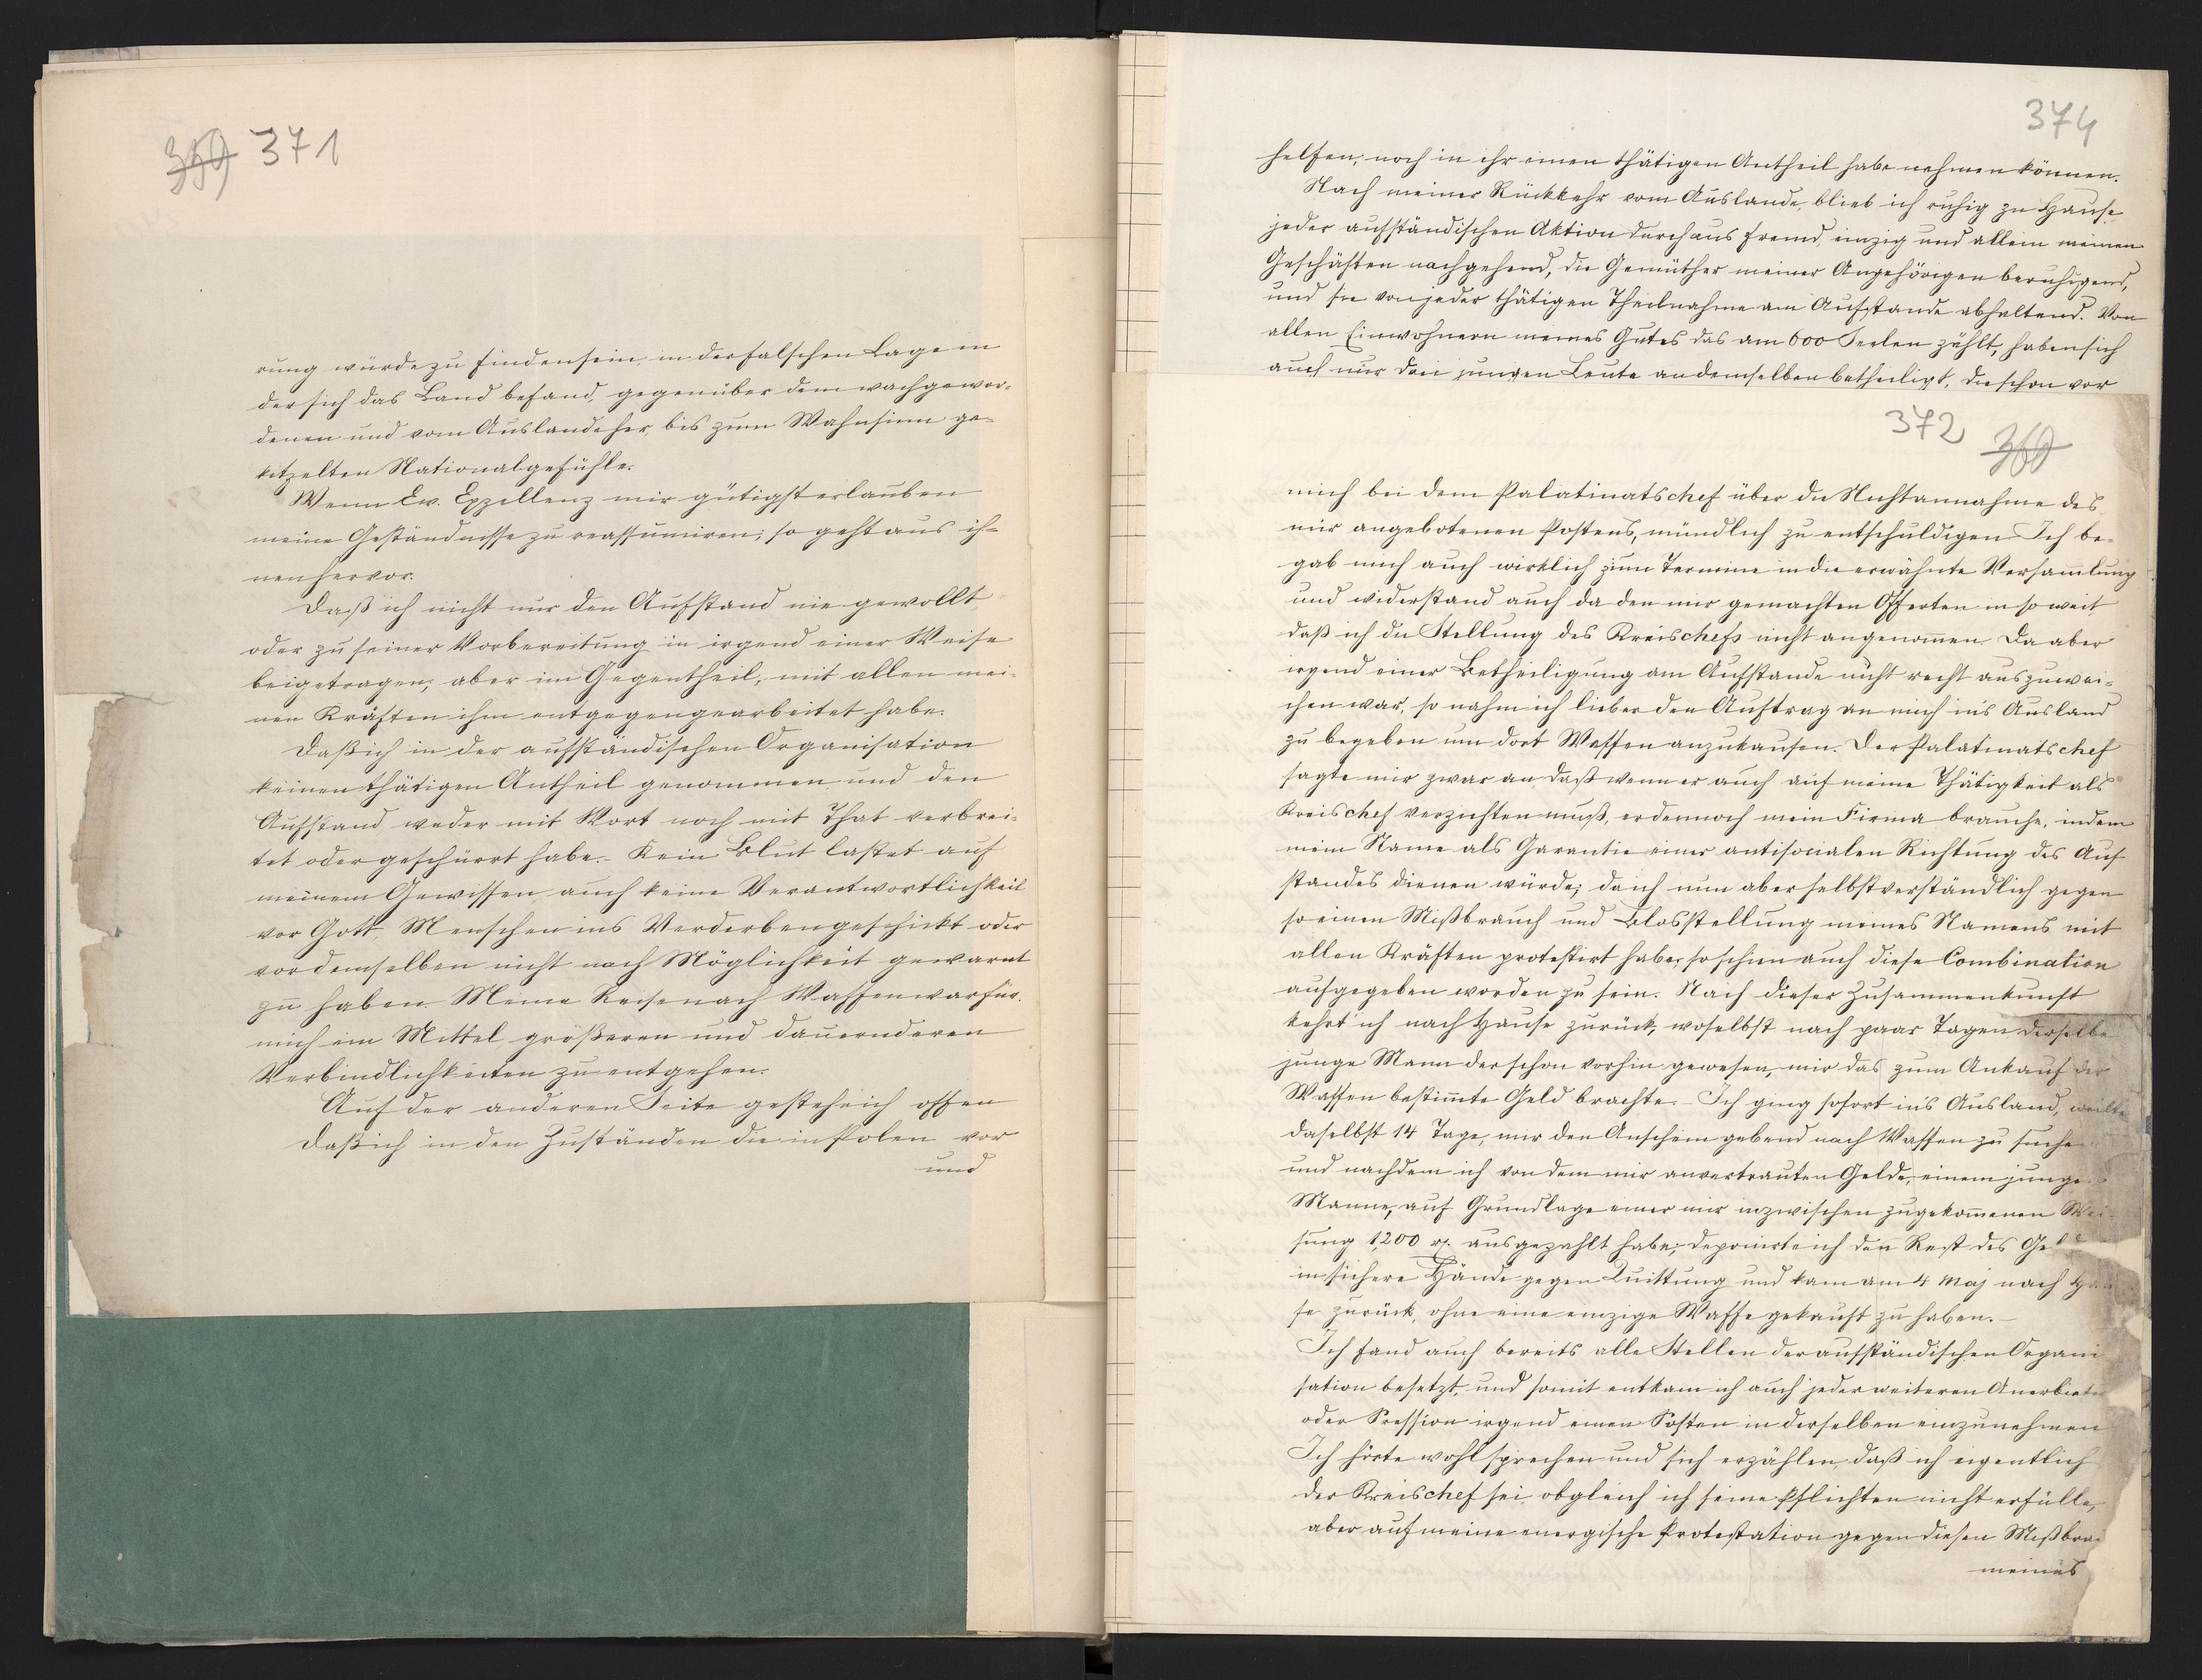 369 371
rung würde zu finden sein, in der falschen Lage in
der sich das Land befand, gegenüber dem wachgewor-
denen und vom Auslande her, bis zum Wahnsinn ge-
kitzelten Nationalgefühle.
Wenn Ew. Exzellenz mir gütigst erlauben
meine Geständnisse zu reassumiren; so geht aus ih-
nen hervor.
Daß ich nicht nur den Aufstand nie gewollt
oder zu seiner Vorbereitung in irgend einer Weise
beigetragen, aber im Gegentheil, mit allen mei-
nen Kräften ihm entgegengearbeitet habe.
Daß ich in der aufständischen Organisation
keinen thätigen Antheil genommen und den
Aufstand weder mit Wort noch mit That verbrei-
tet oder geschürrt habe.- Kein Blut lastet auf
meinem Gewissen, auch keine Verantwortlichkeit
vor Gott, Menschen ins Verderben geschickt oder
vor demselben nicht nach Möglichkeit gewarnt
zu haben. Meine Reise nach Waffen war für
mich ein Mittel, größeren und dauernderen
Verbindlichkeiten zu entgehen.
Auf der anderen Seite gestehe ich offen
daß ich in den Zuständen die in Polen vor
und
374
helfen, noch in ihr einen thätigen Antheil habe nehmen können.
Nach meiner Rückkehr vom Auslande, blieb ich ruhig zu Hause
jeder aufständischen Aktion durchaus fremd, einzig und allein meinen
Geschäften nachgehend, die Gemüther meiner Angehörigen beruhigend,
und sie von jeder thätigen Theilnahme am Aufstande abhaltend. Von
allen Einwohnern meines Gutes das am 600 Seelen zählt, haben sich
auch nur drei jungen Leute an demselben betheiligt, die schon vor
372 369
mich bei dem Palatinatschef über die Nichtannahme des
mir angebotenen Postens, mündlich zu entschuldigen. Ich be-
gab mich auch wirklich zum Termine in die erwähnte Versam̅lung
und widerstand auch da den mir gemachten Offerten in so weit
daß ich die Stellung des Kreischefs nicht angenom̅en. Da aber
irgend einer Betheiligung am Aufstande nicht recht auszuwei-
chen war, so nahm ich lieber den Auftrag an mich ins Ausland
zu begeben um dort Waffen anzukaufen. Der Palatinatschef
sagte mir zwar an, daß wenn er auch auf meine Thätigkeit als
Kreischef verzichten muß, er dennoch mein Firma brauche, indem
mein Name als Garantie einer antisocialen Richtung des Auf
standes dienen würde; da ich nun aber selbstverständlich gegen
so einen Mißbrauch und Blosstellung meines Namens mit
allen Kräften protestirt habe, so schien auch diese Combination
aufgegeben worden zu sein. Nach dieser Zusammenkunft
kehrt ich nach Hause zurück, woselbst nach paar Tagen derselbe
junge Mann der schon vorhin gewesen, mir das zum Ankauf der
Waffen bestim̅te Geld brachte.- Ich ging sofort ins Ausland, weilte
daselbst 14 Tage, mir den Anschein gebend nach Waffen zu suche
und nachdem ich von dem mir anvertrauten Gelde, einem junge
Manne, auf Grundlage einer mir inzwischen zugekom̅enen Wei
sung 1,200 ausgezahlt habe, deponirte ich den Rest des Gel
in sichere Hände gegen Quittung und kam am 4 Maj nach Hau
se zurück, ohne eine einzige Waffe gekauft zu haben.-
Ich fand auch bereits alle Stellen der aufständischen Organi
sation besetzt, und somit entkam ich auch jeder weiteren Anerbiete
oder Pression irgend einen Posten in derselben einzunehmen
Ich hörte wohl sprechen und sich erzählen, daß ich eigentlich
der Kreischef sei, obgleich ich seine Pflichten nicht erfülle,
aber auf meine energische Protestation gegen diesen Mißbrau
meines